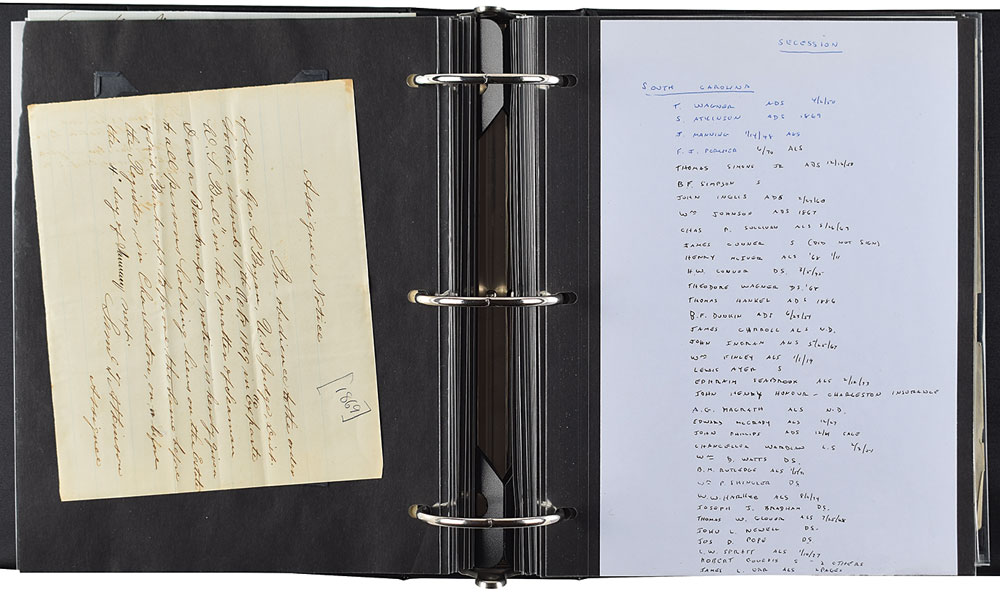 Assignees Notice
In pursuance to the order
of Hon. Geo. S. Bryan U.S. Judge Dist.
Dead a Bankrupt notice is hereby given
to all persons holding liens on the Estate
of said Bankrupt to prove the same before
the Register, in Charleston, on or before
the 4th day of January next.
Saml. T. Atkinson
Assignee
[1869]
SECESSION
SOUTH CAROLINA
T. WAGNER ADS 4/2/50
S. ATKINSON ADS 1869
J. MANNING 1/14/48 ALS
F. J. PORCHER 6/70 ALS
THOMAS SIMONS JR ADS 12/12/58
B.F. SIMPSON S
JOHN INGLIS ADS 2/27/60
Wm JOHNSON ADS 1867
CHAS P. SULLIVAN ALS 5/26/67
JAMES CONNER S (DID NOT SIGN)
HENRY McIVER ALS '68 1/11
H.W. CONNOR DS. 3/5/45
THEODORE WAGNER DS. '64
THOMAS HANKEL ADS 1886
B.F. DUNKIN ADS 6/23/54
JAMES CARROLL ALS N.D.
JOHN INGRAM ANS 5/25/67
Wm FINLEY ALS 1/1/19
LEWIS AYER S
EPHRAIM SEABROOK ALS 2/12/73
JOHN HENRY HONOUR - CHARLESTON INSURANCE
A.G. MAGRATH ALS N.D.
EDWARD McCRADY ALS 12/27
JOHN PHILLIPS ADS 12/4 SALE
CHANCELLER WARDLAW L.S 2/3/54
Wm D. WATTS DS.
B.H. RUTLEDGE ALS
Wm P. SHINGLER DS
W.W. HARLLEE ALS 8/2/74
JOSEPH J. BRABHAM DS.
THOMAS W. GLOVER ALS 7/25/68
JOHN L. NEWELL DS.
JOS D. POPE DS
L.W. SPRATT ALS 1/10/27
ROBERT S - 2 OTHERS
JAMES L. ORR ALS 2 PAGES